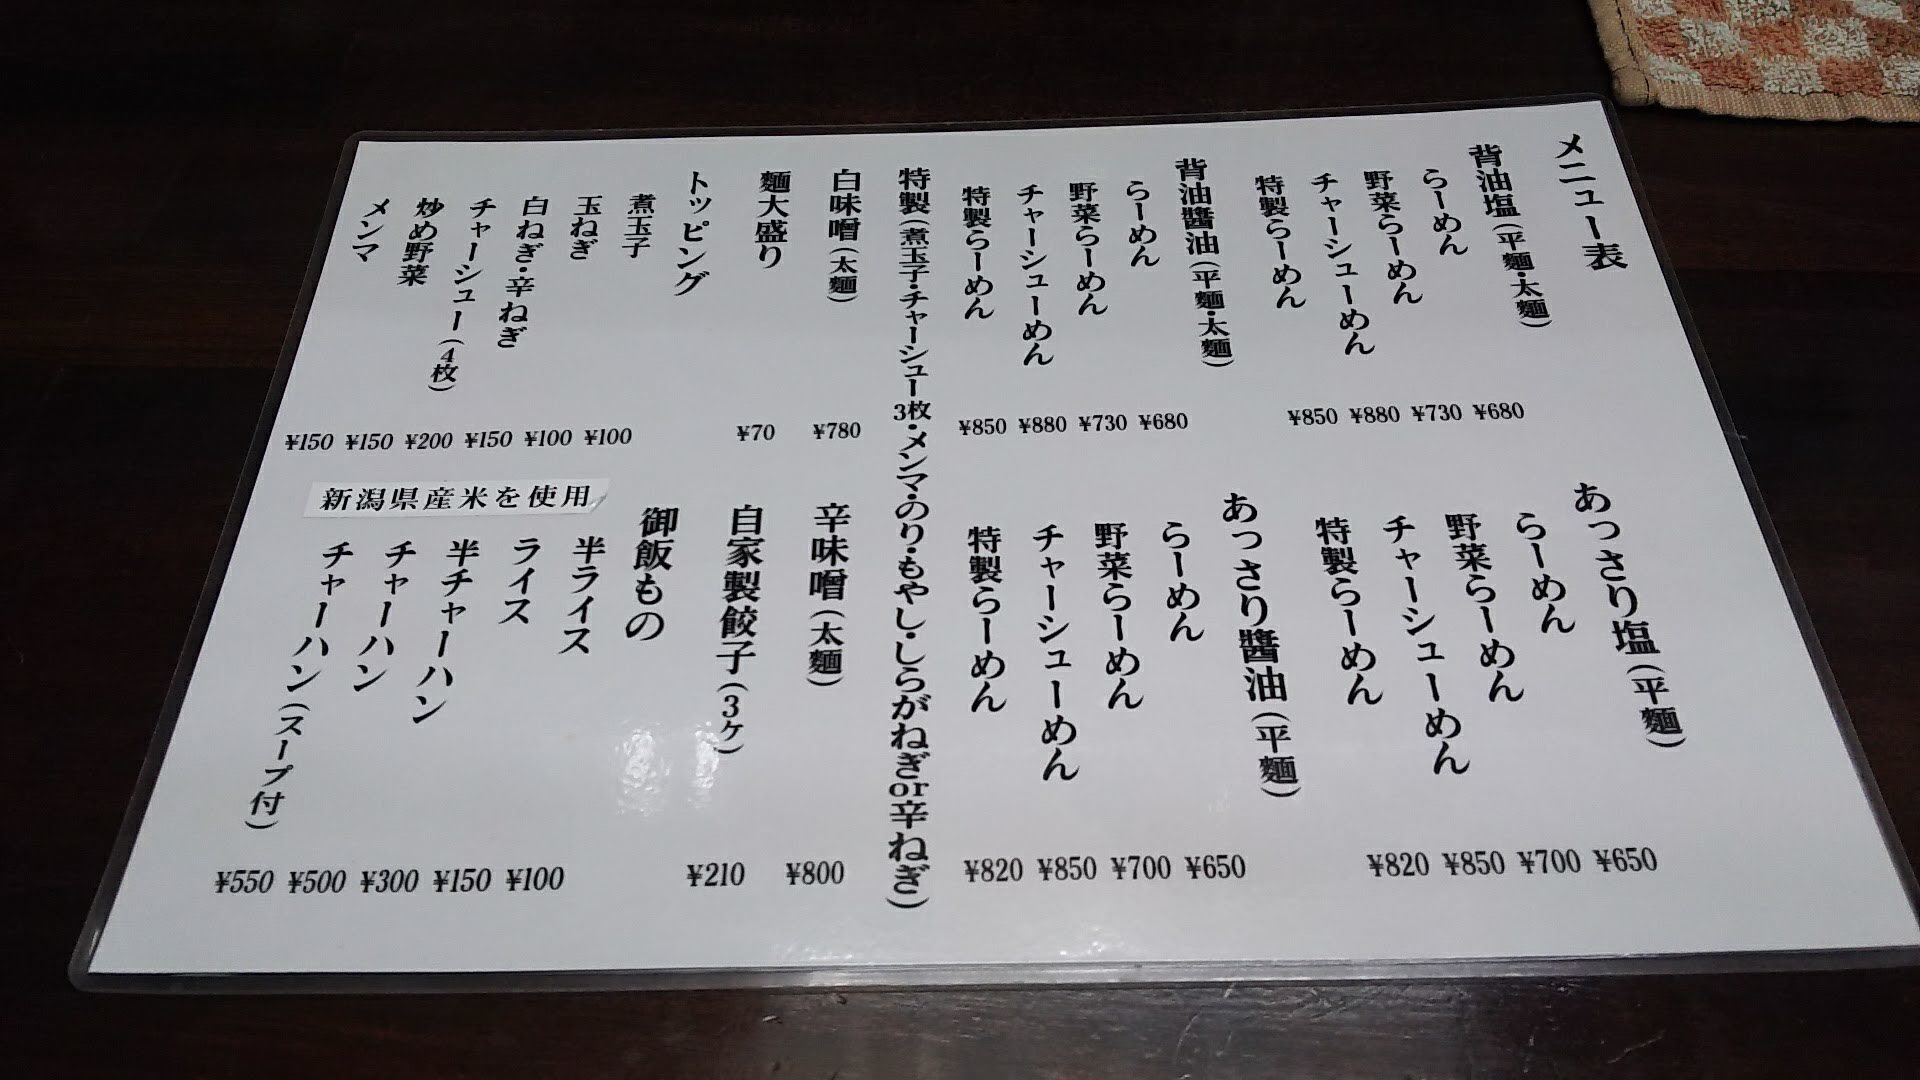 メニュー表
背油塩(平麺・太麺)
らーめん ¥680
野菜らーめん ¥730
チャーシューめん ¥880
特製らーめん ¥850
背油醬油(平麺・太麺)
らーめん ¥680
野菜らーめん ¥730
チャーシューめん ¥880
特製らーめん ¥850
あっさり塩(平麺)
らーめん ¥650
野菜らーめん ¥700
チャーシューめん ¥850
特製らーめん ¥820
あっさり醬油(平麺)
らーめん ¥650
野菜らーめん ¥700
チャーシューめん ¥850
特製らーめん ¥820
特製(煮玉子・チャーシュー3枚・メンマ・のり・もやし・しらがねぎor辛ねぎ)
白味噌(太麺) ¥780
麺大盛り ¥70
トッピング
煮玉子 ¥100
玉ねぎ ¥100
白ねぎ・辛ねぎ ¥150
チャーシュー(4枚) ¥200
炒め野菜 ¥150
メンマ ¥150
辛味噌(太麺) ¥800
自家製餃子(3ヶ) ¥210
御飯もの
半ライス ¥100
ライス ¥150
半チャーハン ¥300
チャーハン ¥500
チャーハン(スープ付) ¥550
新潟県産米を使用